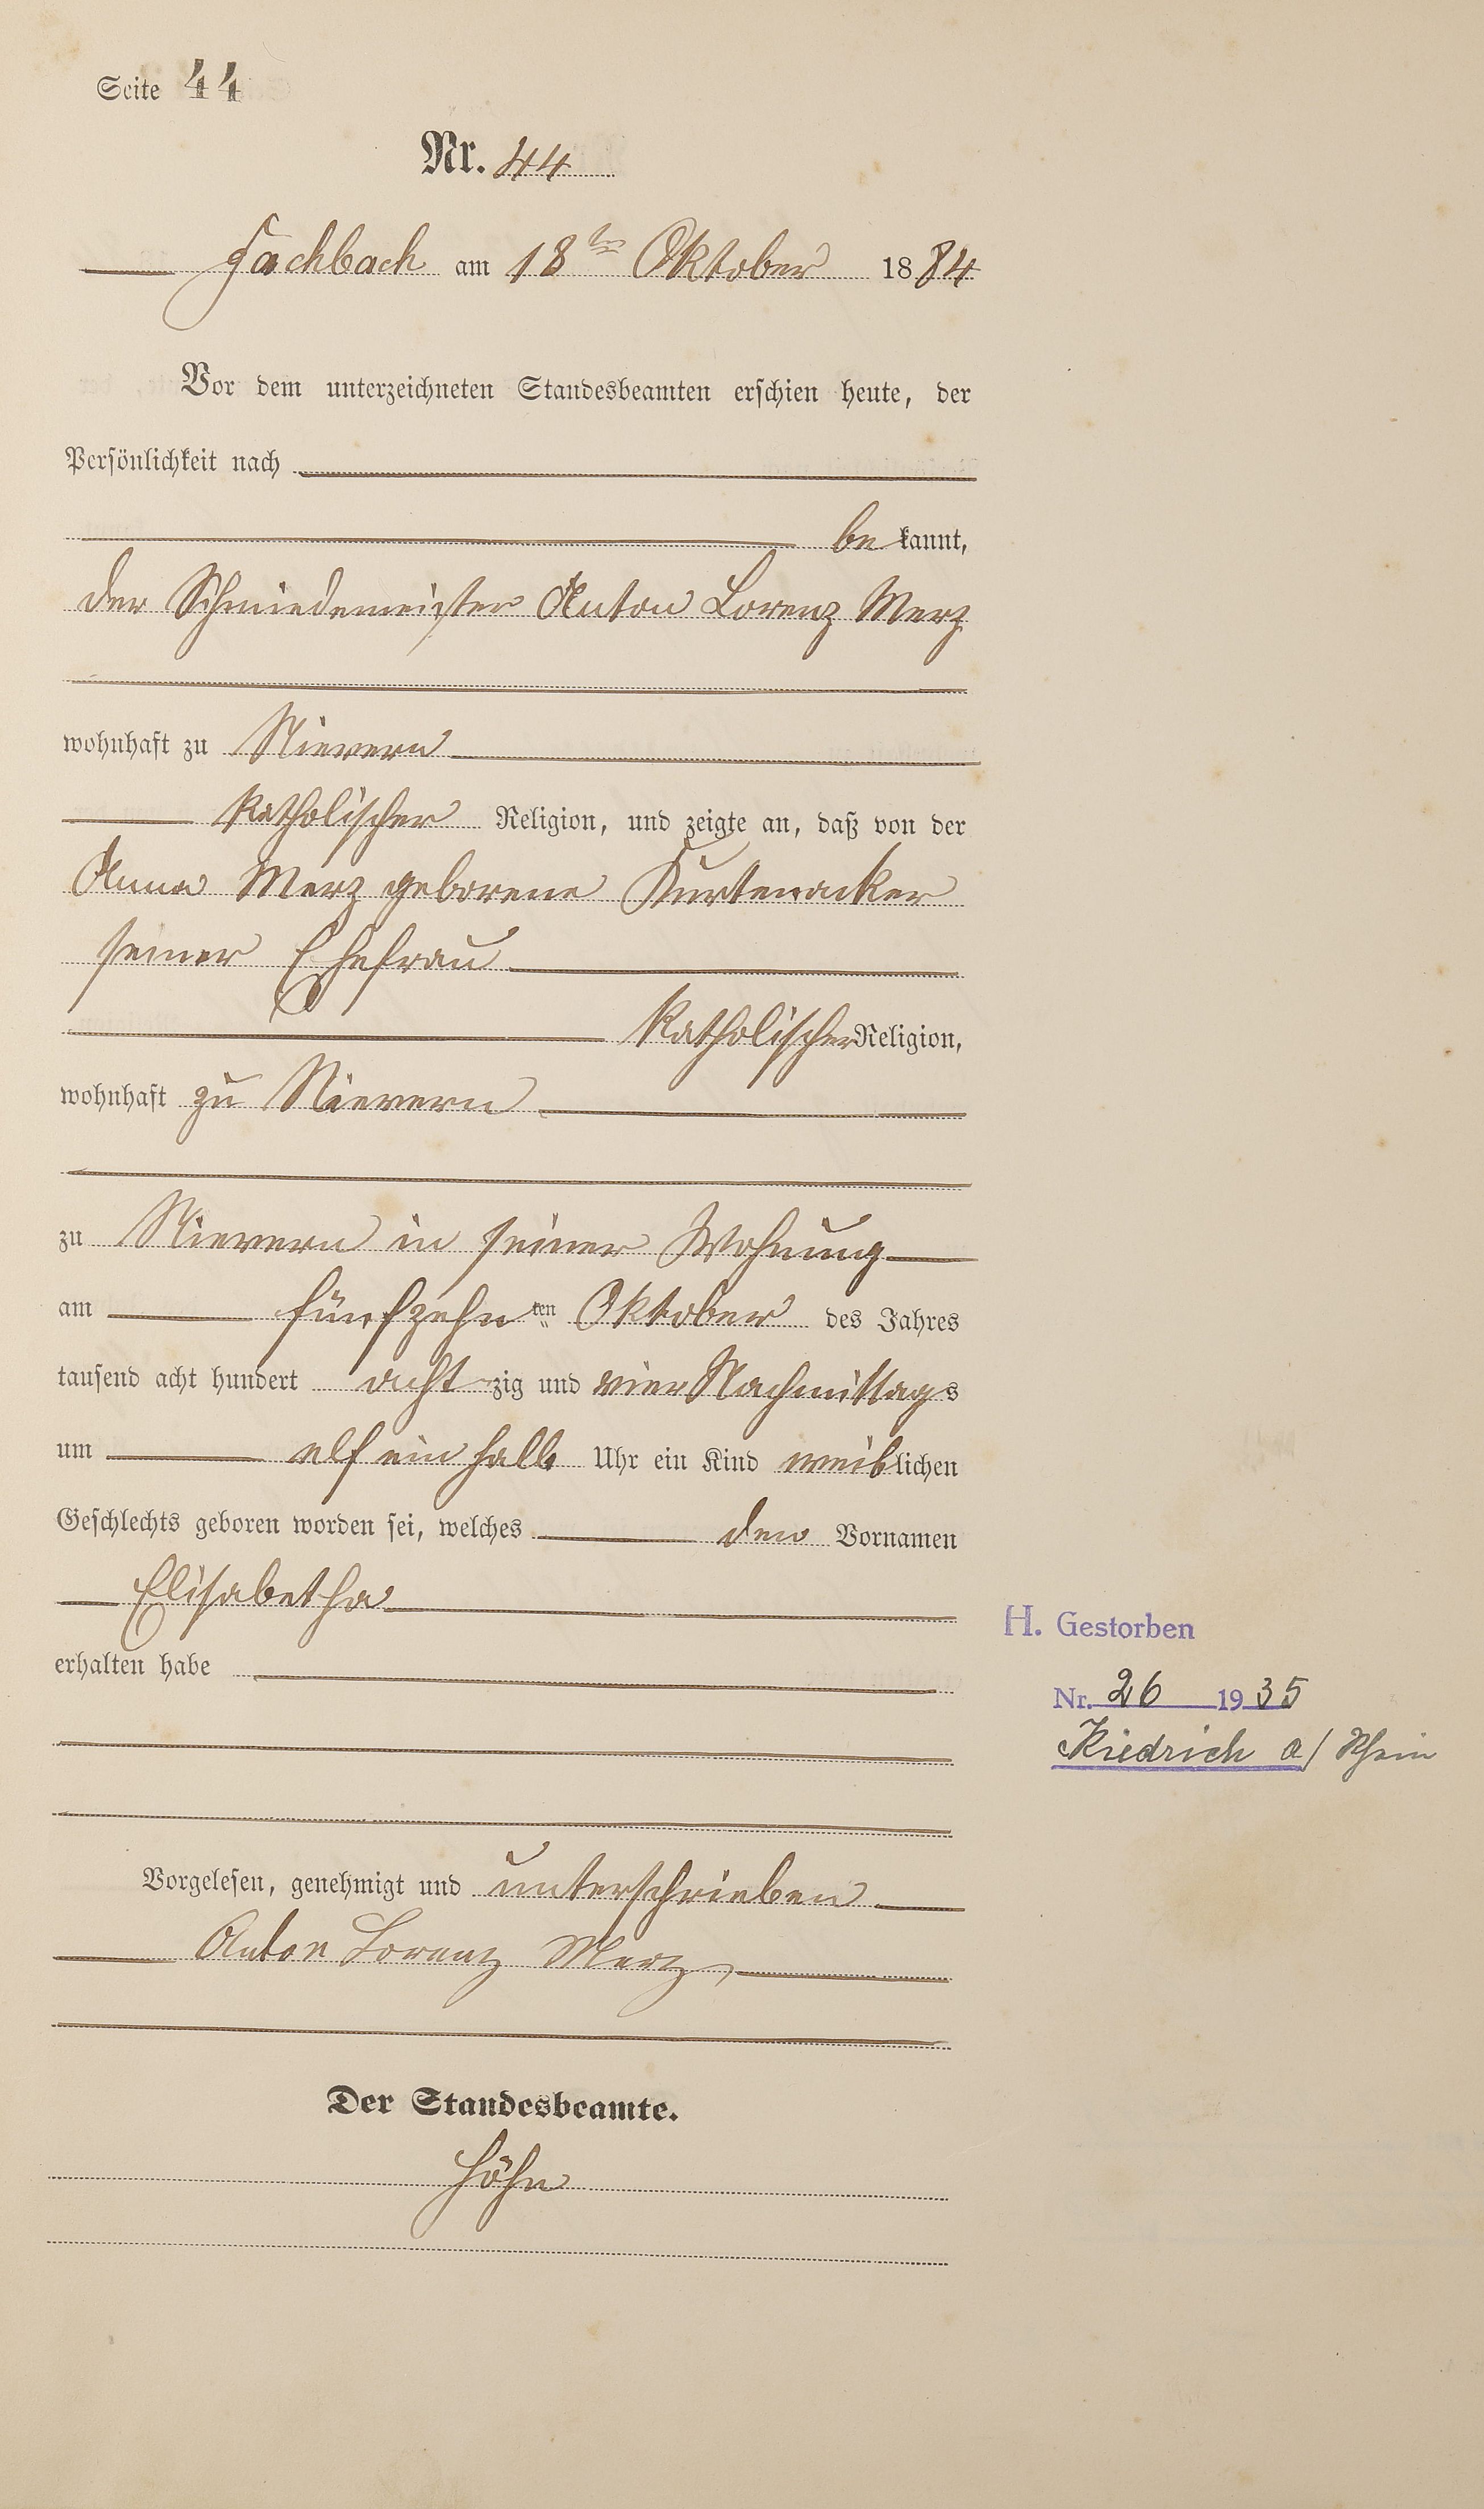 Seite 44
Nr. 44
Fachbach am 18ten Oktober 1884
Vor dem unterzeichneten Standesbeamten erschien heute, der
Persönlichkeit nach
be kannt,
der Schmiedemeister Anton Lorenz Merz
wohnhaft zu Nievern
katholischer Religion, und zeigte an, daß von der
Anna Merz geborene Kurtenacker
seiner Ehefrau
katholischer Religion,
wohnhaft zu Nievern
zu Nievern in seiner Wohnung
am fünfzehnten Oktober des Jahres
tausend acht hundert achtzig und vier Nachmittags
um elf ein halb Uhr ein Kind weiblichen
Geschlechts geboren worden sei, welches den Vornamen
Elisabetha
erhalten habe
H. Gestorben
Nr. 26 1935
Kiedrich a/ Rhein
Vorgelesen, genehmigt und unterschrieben
Anton Lorenz Merz
Der Standesbeamte.
Höhn